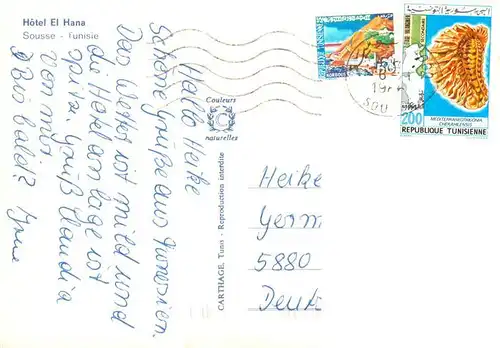 Hôtel El Hana
Sousse - Tunisie
Hallo Heike
Schöne Grüße aus Tunesien.
Das Wetter ist mild und
die Hotelanlage ist
spitze. Grüß Claudia
von mir
Bis bald?
Couleurs
naturelles
CARTHAGE, Tunis - Reproduction interdite
Heike
5880
Deut
KORBOUS
200
MEDITERRANEOTRIGONIA
CHERAHILENSIS
REPUBLIQUE TUNISIENNE